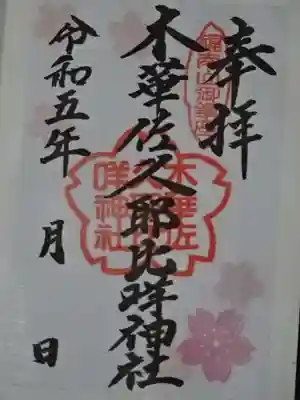 奉拝
木華佐久耶比咩神社
令和五年 月 日
木華佐
久耶比
咩神社